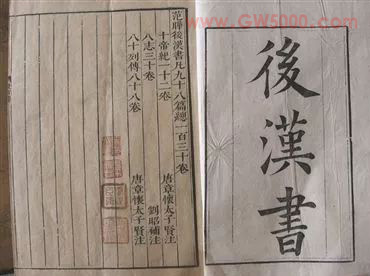 www.GW5000.com
後漢書
范曄後漢書凡九十八篇總一百三十卷
十帝紀一十二卷 唐章懷太子賢注
八志三十卷 劉昭補注
八十列傳八十八卷 唐章懷太子賢注